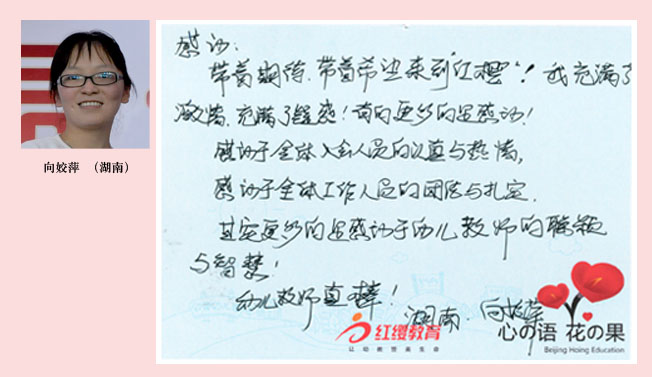 向姣萍 (湖南)
感动:
带着期待、带着希望来到"红樱"!我充满了
激情,充满了灵感!有的更多的是感动!
感动于全体入会人员的认真与热情,
感动于全体工作人员的团结与扎实.
其实更多的是感动于幼儿教师的聪颖
与智慧!
幼儿教师真棒!
湖南. 向姣萍
红缨教育
心の语 花の果
Beijing Hoing Education